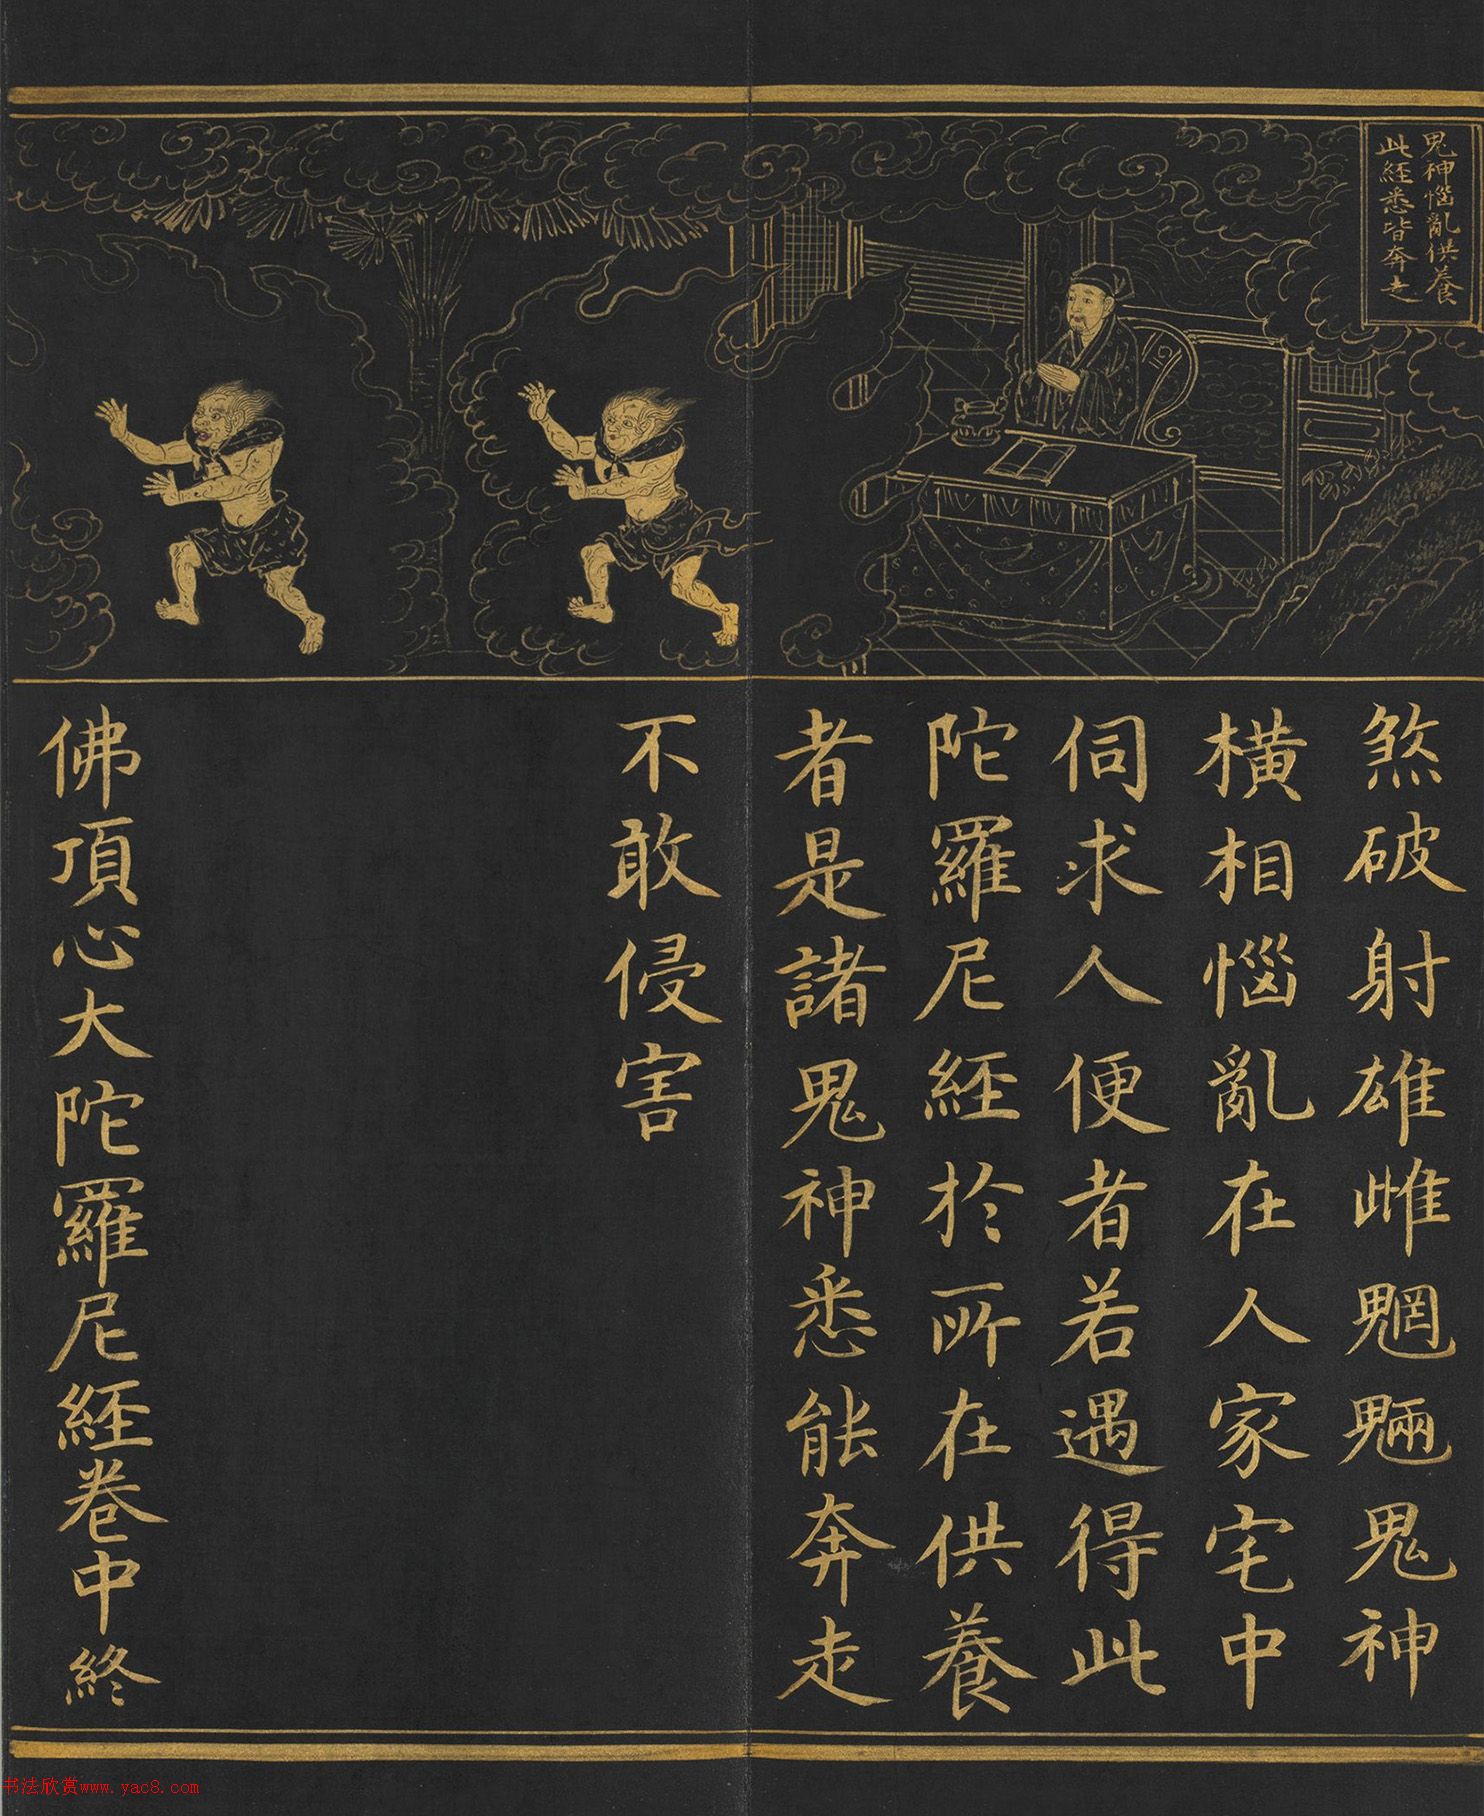 鬼神惱亂供養
此經悉皆奔走
煞破射雄雌魍魎鬼神
橫相惱亂在人家宅中
伺求人便者若遇得此
陀羅尼經於所在供養
者是諸鬼神悉能奔走
不敢侵害
佛頂心大陀羅尼經卷中終
书法欣赏www.yac8.com